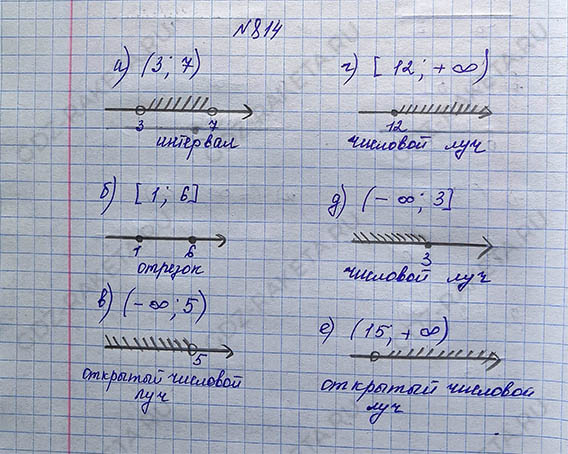 №814
а) (3; 7)
3 7
интервал
б) [1; 6]
1 6
отрезок
в) (-∞; 5)
5
открытый числовой
луч
г) [12; +∞)
12
числовой луч
д) (-∞; 3]
3
числовой луч
е) (15, +∞)
открытый числовой
луч
GDZ-RAKETA.RU